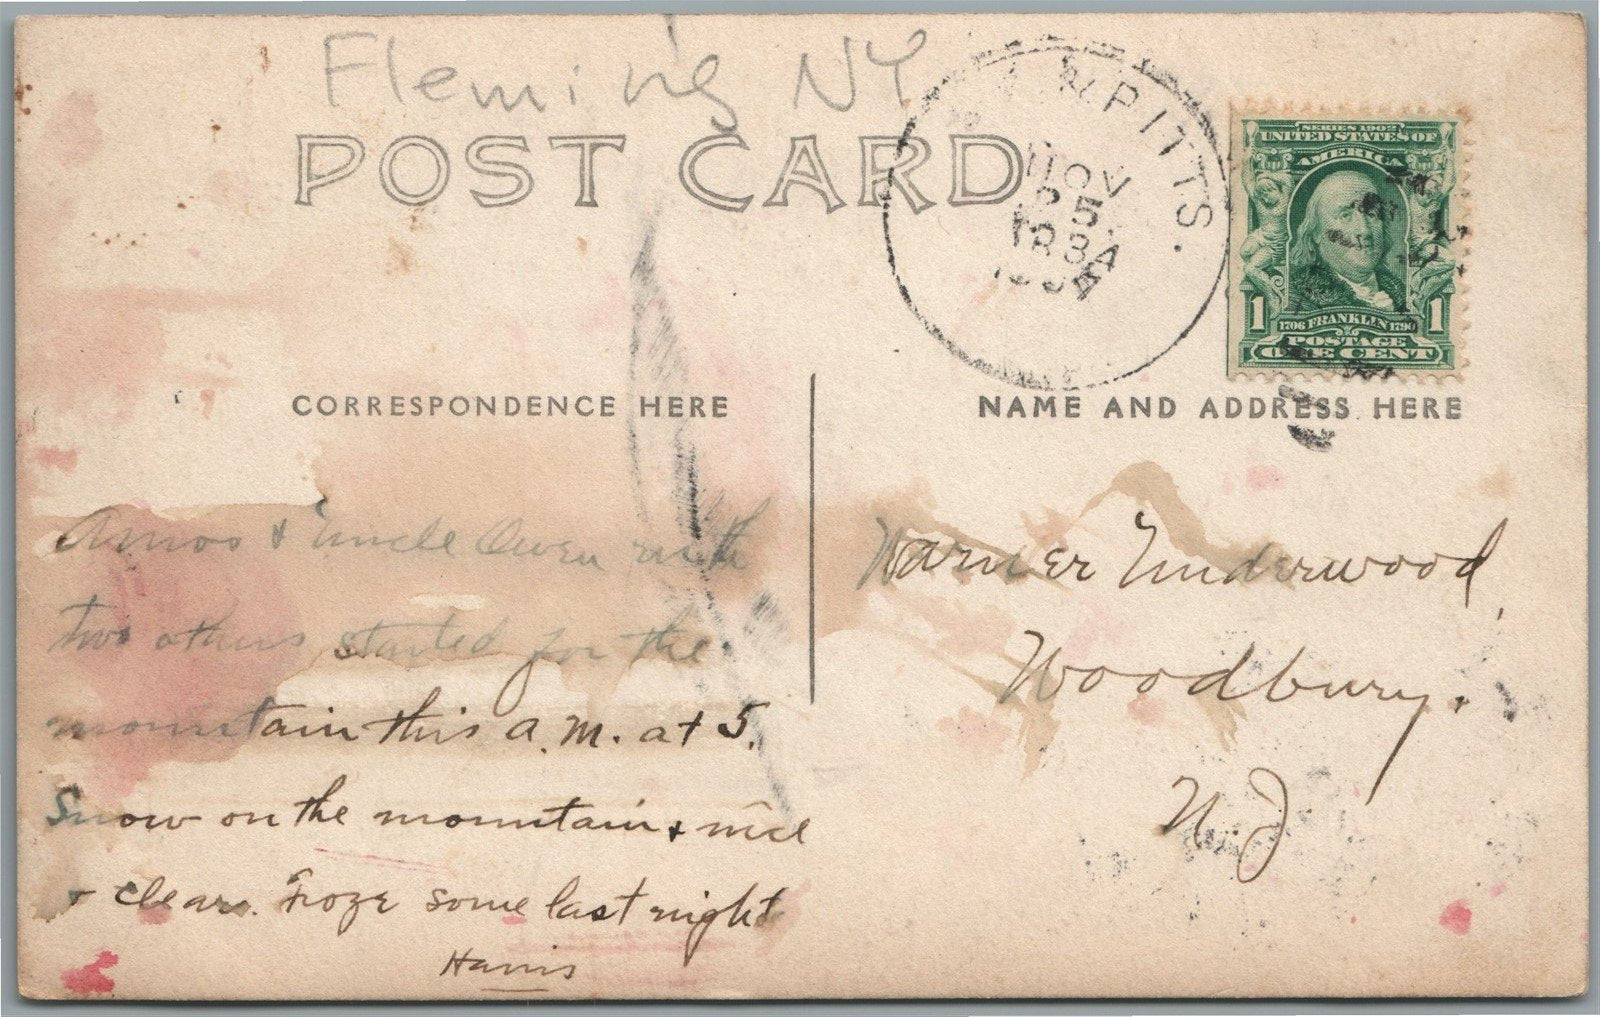 Fleming NY
POST CARD
PITTS.
NOV
5
SERIES 1902
UNITED STATES OF
AMERICA
1 1706 FRANKLIN 1790 1
POSTAGE
ONE CENT
CORRESPONDENCE HERE
NAME AND ADDRESS HERE
Amos & Uncle Owen with
two others started for the
mountain this a.m. at 5.
Snow on the mountain & nice
& clear. Froze some last night
Harris
Warner Underwood,
Woodbury.
N.J